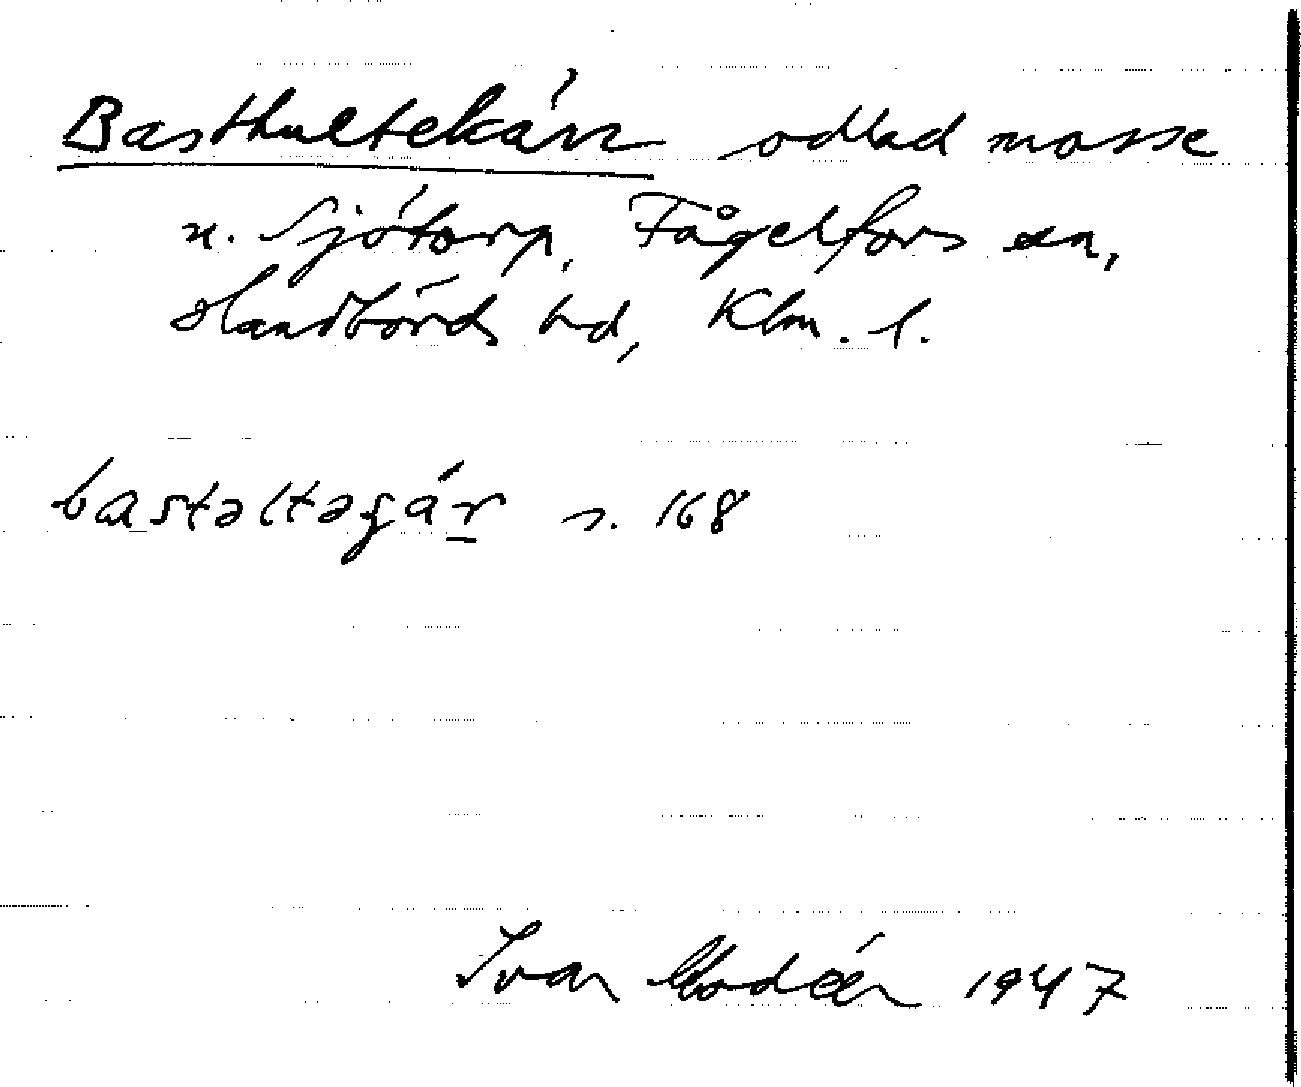 Basthultekärr odlad mosse
n. Sjötorp, Fågelfors sn,
Handbörds hd, Klm. l.
bastəltəgár s. 168
Ivar Modéer 1947